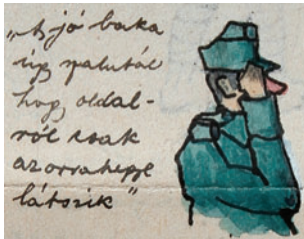 „A jó baka
úgy szalutál
hogy oldal-
ról csak
az orrahegye
látszik”